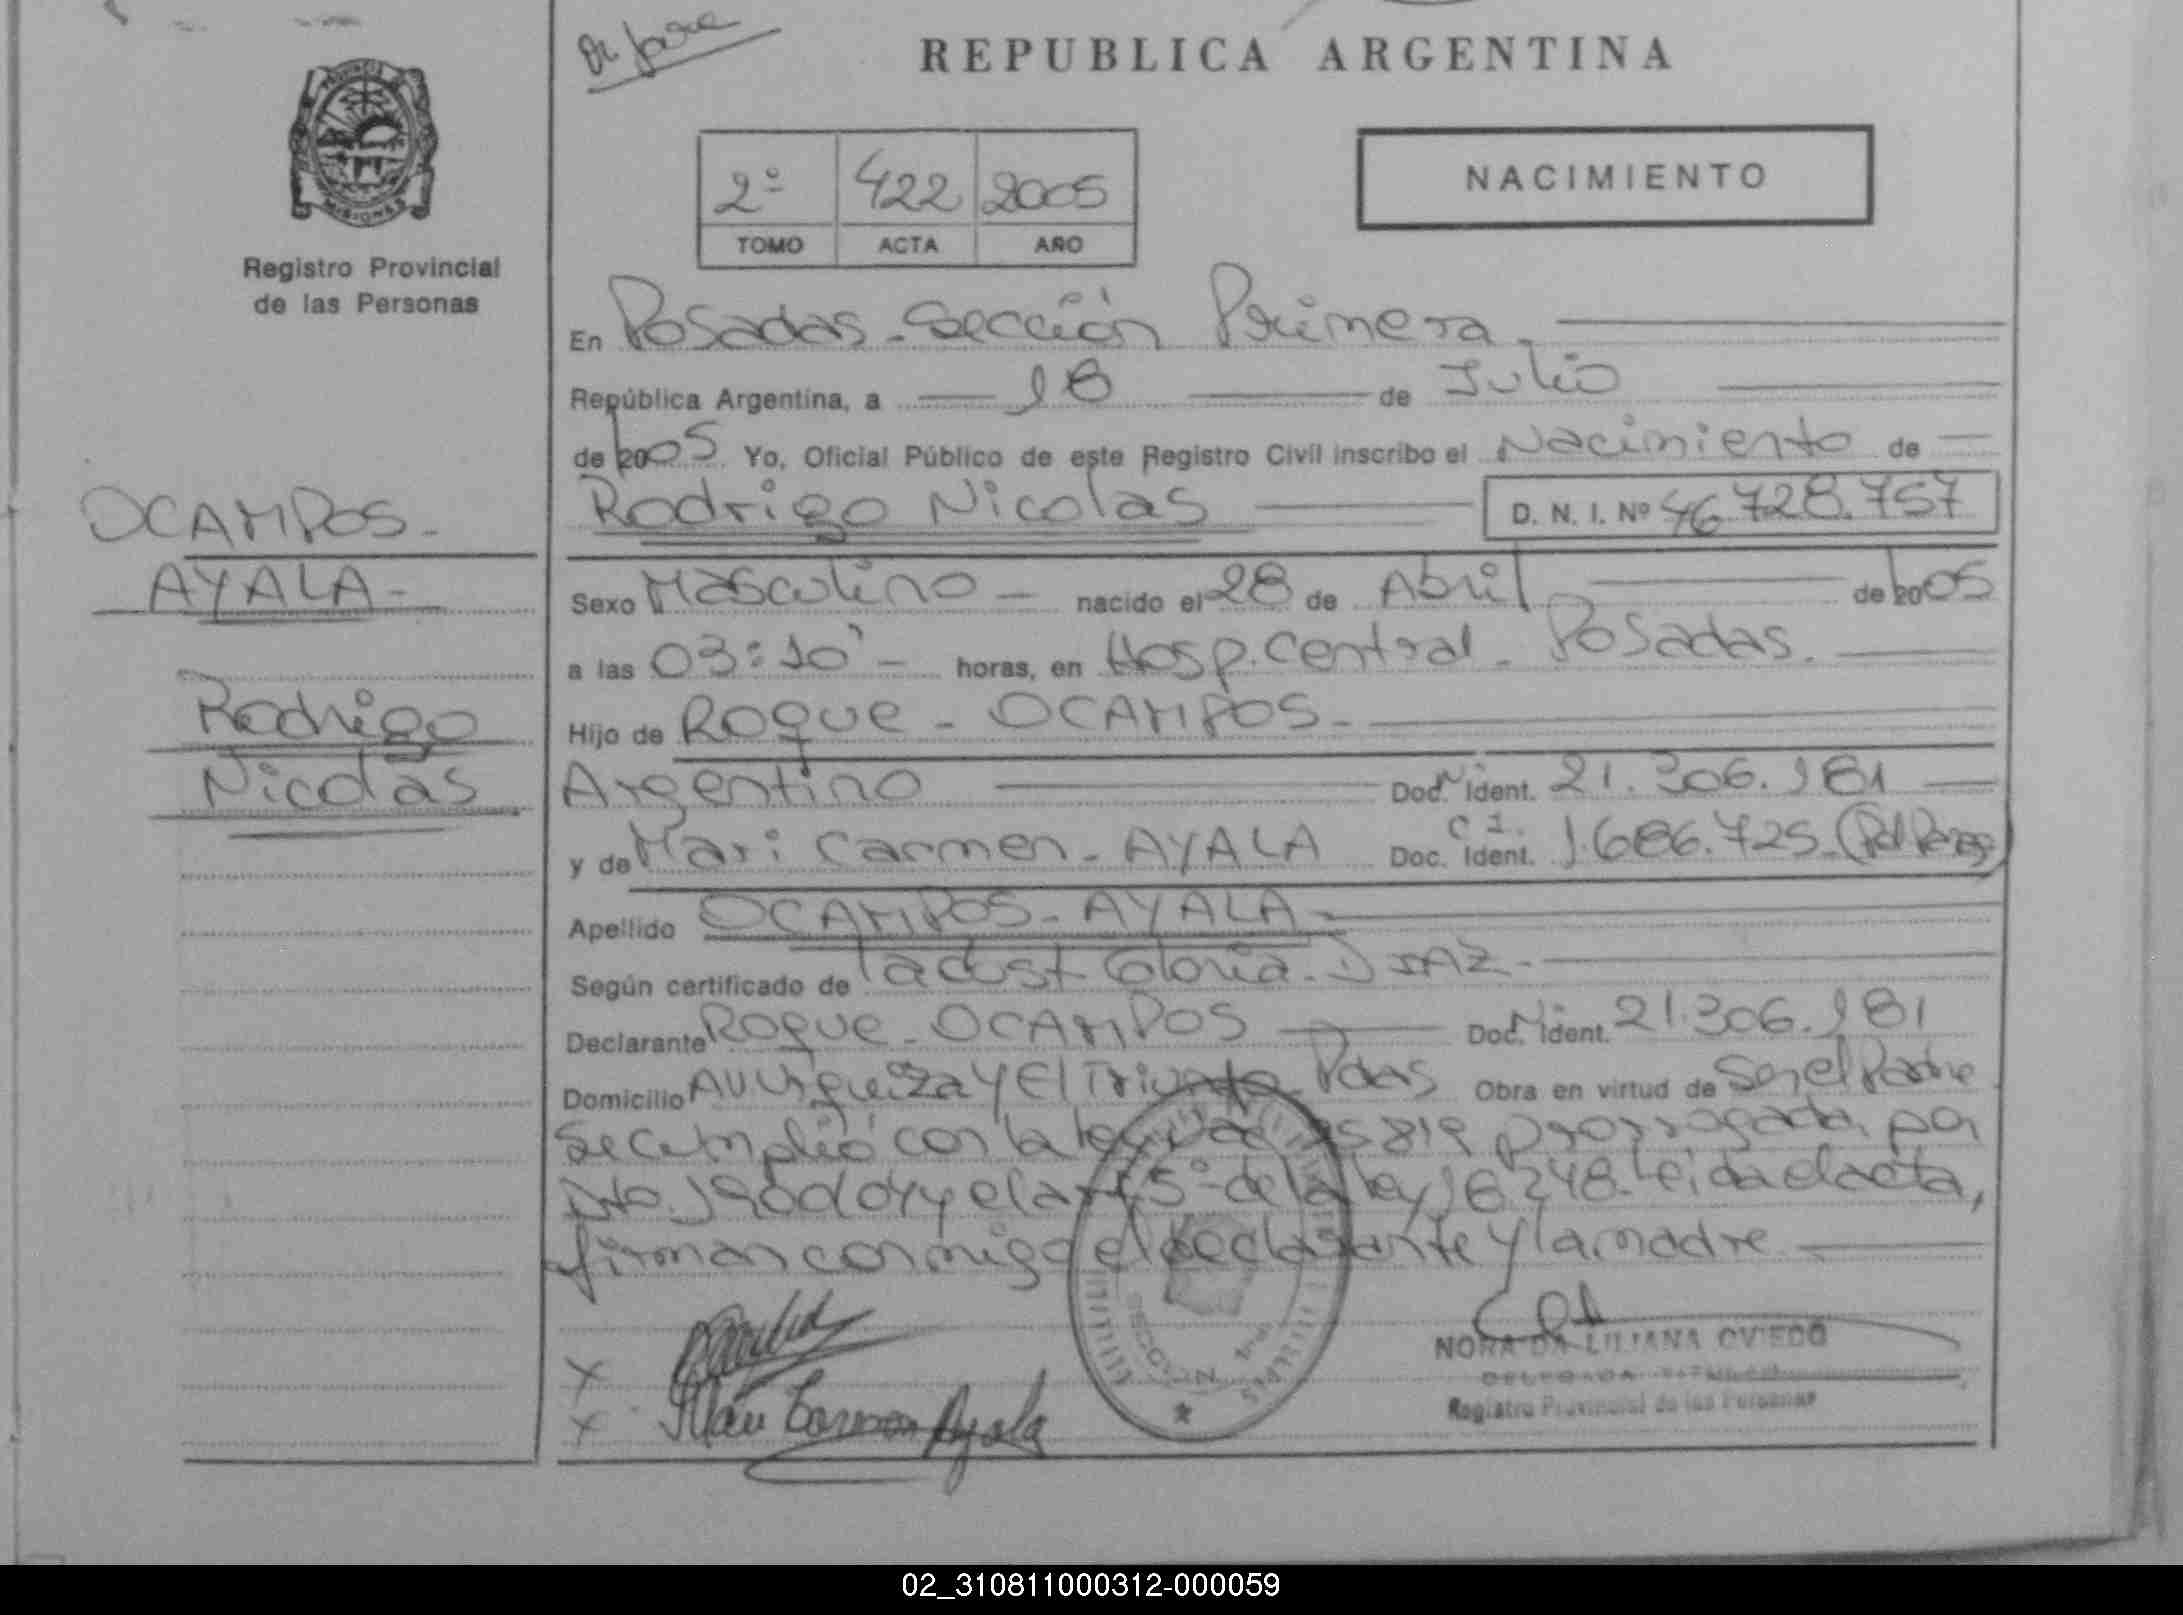 REPUBLICA ARGENTINA
PROVINCIA
MISIONES
Registro Provincial
de las Personas
2º 422 2005
TOMO ACTA AÑO
NACIMIENTO
En Posadas - Sección Primera
República Argentina, a 18 de Julio
de 2005 Yo, Oficial Público de este Registro Civil inscribo el Nacimiento de
Rodrigo Nicolas D. N. I. Nº 46.728.757
OCAMPOS-
AYALA-
Rodrigo
Nicolas
Sexo Masculino - nacido el 28 de Abril de 2005
a las 03:10' - horas, en Hosp. Central - Posadas.
Hijo de Roque - OCAMPOS -
Argentino Doc. Ident. 21.306.181
y de Mari Carmen - AYALA Doc. Ident. C I. 1.686.725 - (Pol
Apellido OCAMPOS - AYALA -
Según certificado de la obst Gloria - DIAZ -
Declarante Roque - OCAMPOS Doc. Ident. 21.306.181
Domicilio Av Urquiza y El Pdas Obra en virtud de Ser el Padre
Se cumplió con la ley 819 prorrogada por
Dto. 1900/04 y el art. 5º de la ley 18.248. Leida el acta,
firman conmigo el declarante y la madre
Mari Carmen Ayala
SECCION 1ra
NORA DA LILIANA OVIEDO
DELEGADA TITULAR
Registro Provincial de las Personas
02_310811000312-000059